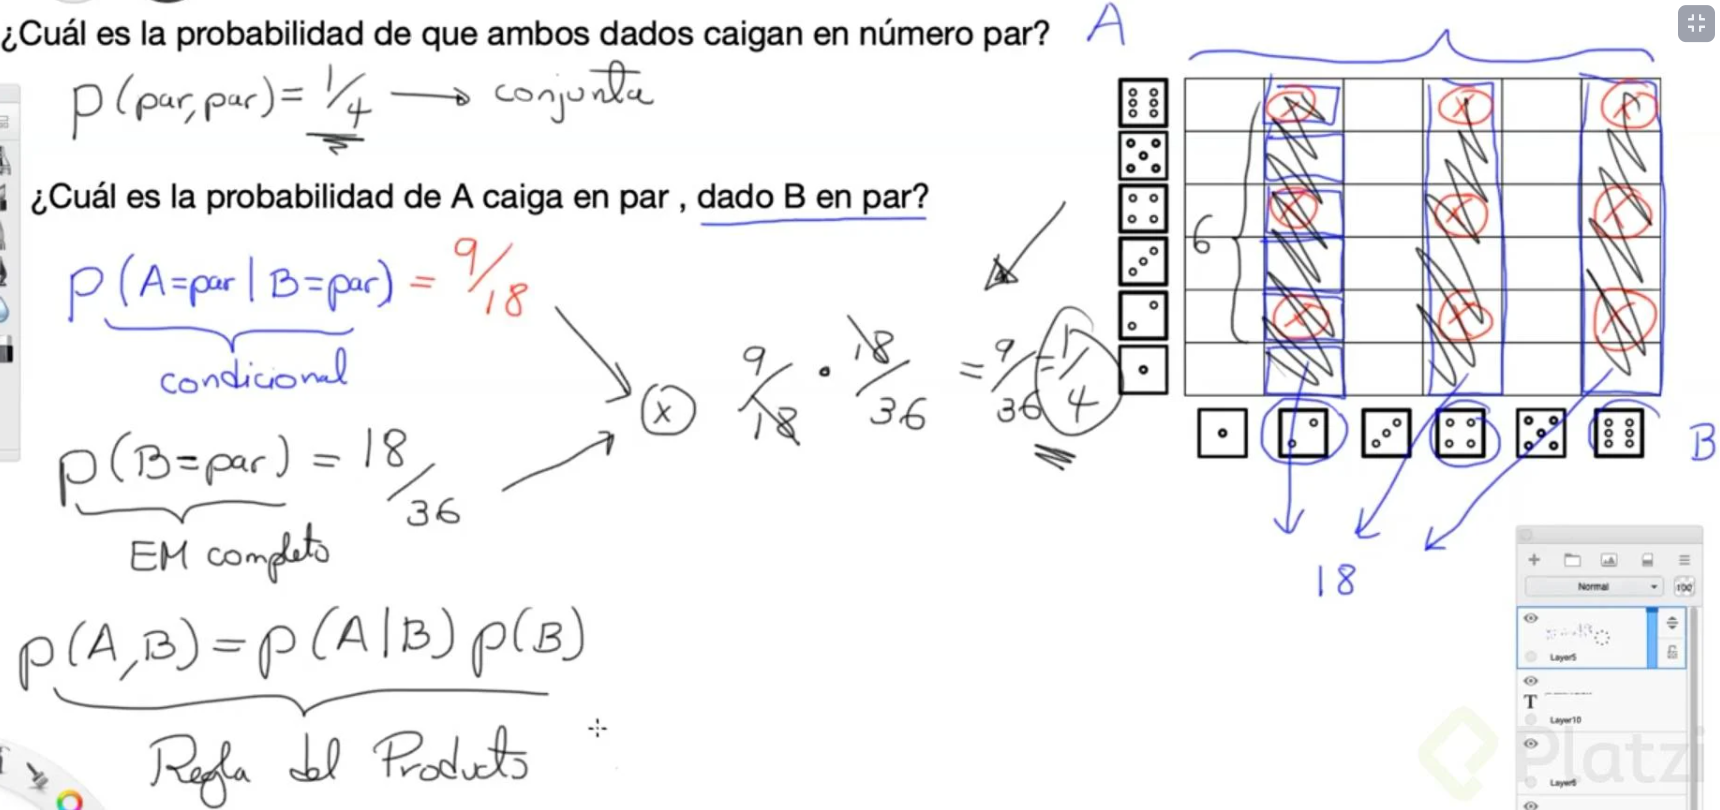 ¿Cuál es la probabilidad de que ambos dados caigan en número par?
A
p(par,par) = 1/4 → conjunta
¿Cuál es la probabilidad de A caiga en par , dado B en par?
p(A=par | B=par) = 9/18
condicional
p(B=par) = 18/36
EM completo
(x) 9/18 · 18/36 = 9/36 = 1/4
p(A,B) = p(A|B) p(B)
Regla del Producto
6
B
18
Normal
100
Layer5
T
Layer10
Layer6
Platzi